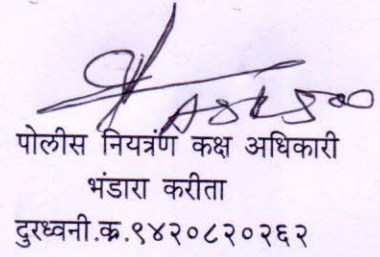 पोलीस नियत्रंण कक्ष अधिकारी
भंडारा करीता
दुरध्वनी.क्र.९४२०८२०२६२